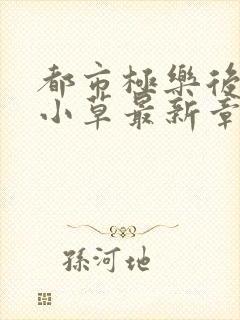 都市極樂後
小草最新章
孫河地